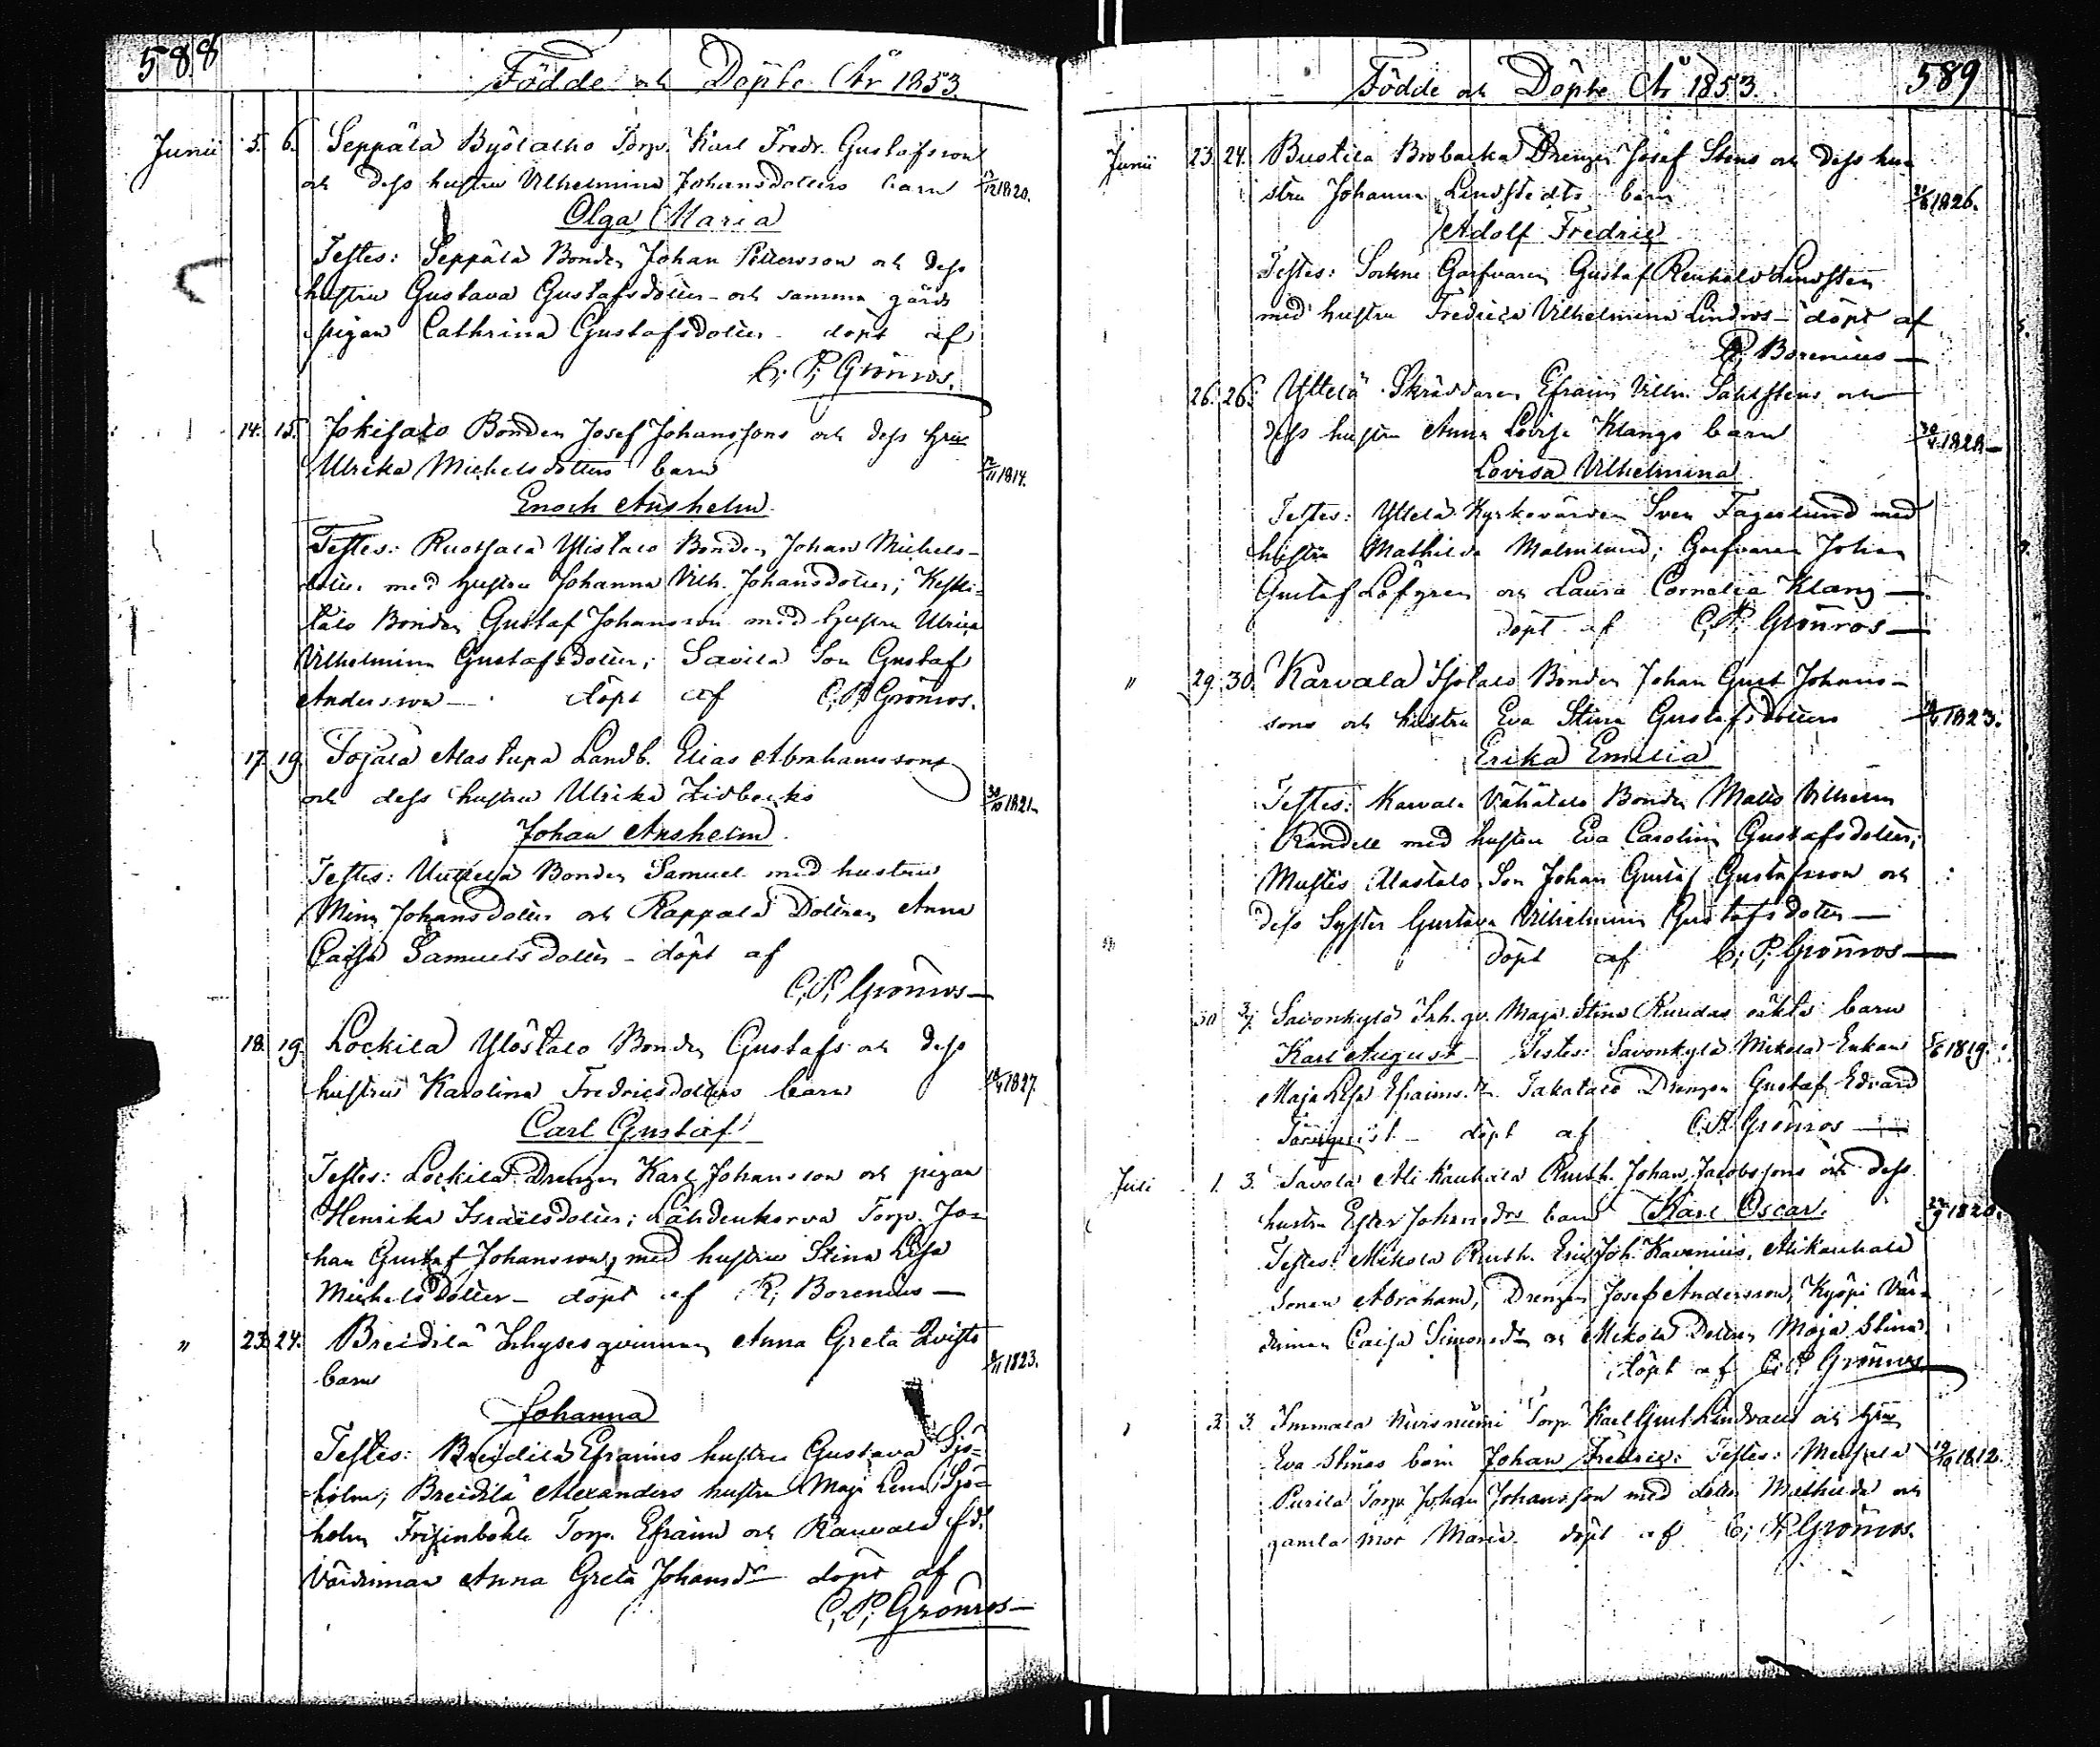 588
Födde och Döpte År 1853.
Junii 5. 6. Seppälä Byötalho Torp. Karl Fredr. Gustafsson
och dess hustru Vilhelmina Johansdotters barn 1820.
Olga Maria
Testes: Seppälä Bonden Johan Pettersson och dess
hustru Gustava Gustafsdotter - och samma gårds
pigan Cathrina Gustafsdotter - döpt af
C. P. Grönroos.
14. 15. Jokisalo Bonden Josef Johanssons och dess hru
Ulrika Michelsdotters barn 1814.
Enoch Anshelm.
Testes: Ruotsala Ylistalo Bonden Johan Michels-
med hustru Johanna Vilh. Johansdotter; Keski-
talo Bonden Gustaf Johansson med hustru Ulrica
Vilhelmina Gustafsdotter; Savila Son Gustaf
Andersson — döpt af C. P. Grönroos.
17. 19. Alastupa Landb. Elias Abrahamssons
och dess hustru Ulrika 30/10 1821
Johan Anshelm.
Testes: Bonden Samuel med hustru
Mina Johansdotter och Rappala Dottren Anna
Caisa Samuelsdotter - döpt af
C. P. Grönroos —
18. 19. Lockila Ylöstalo Bonden Gustafs och dess
hustru Karolina Fredricsdotters barn 1827.
Carl Gustaf
Testes: Lockila Drengen Karl Johansson och pigan
Henrika Israelsdotter; Lähdenkorva Torp. Jo-
han Gustaf Johansson, med hustru Stina Lisa
Michelsdotter — döpt af R. Borenius —
" 23. 24. Breidilä Inhysesqvinnan Anna Greta Qvists
barn 1823.
Johanna
Testes: Breidilä Efraims hustru Gustava Sjö-
holm; Breidilä Alexanders hustru Maja Lena Sjö-
holm Torp. Efraim och f.d.
Värdinnan Anna Greta Johansdr döpt af
C. P. Grönroos —
Födde och Döpte År 1853. 589
Junii 23. 24. Bustila Brobacka Drengen Josef Stens och dess hu-
stru Johanna Lindstedts barn 1826.
Adolf Fredric
Testes: Sockne Garfvaren Gustaf Renhold Lindsten
med hustru Fredrica Vilhelmina Lindroos — döpt af
R. Borenius —
26. 26. Yttelä Skräddaren Efraim Vilh. Sahlstens och
dess hustru Anna Lovisa Klangs barn
Lovisa Vilhelmina
Testes: Yttelä Kyrkovärden Sven Fagerlund med
hustru Mathilda Malmlund; Garfvaren Johan
Gustaf Löfgren och Laura Cornelia Klang —
döpt af C. P. Grönroos —
" 29. 30. Karvala Isotalo Bonden Johan Gust. Johans-
sons och hustru Eva Stina Gustafsdotters 1823.
Erika Emilia
Testes: Karvala Vähätalo Bonden Matts Vilhelm
Randell med hustru Eva Carolina Gustafsdotter;
Alastalo Son Johan Gustaf Gustafsson och
dess Syster Gustava Vilhelmina Gustafsdotter —
döpt af C. P. Grönroos —
30 3/7. Savonkylä Inh. qv. Maja Stina oäkta barn
Karl August Testes: Savonkylä Mikola Enkan 1819.
Maja Lisa Efraimsdr. Takatalo Drengen Gustaf Edvard
Törnqvist — döpt af C. P. Grönroos —
Juli 1. 3. Savola Ali Kauhala Rusth. Johan Jacobssons och dess
hustru Ester Johansdrs barn Karl Oscar.
Testes: Mikola Rusth. Eric Joh. Kavenius, Alikauhala
Sonen Abraham, Drengen Josef Andersson, Kyöpi Vär-
dinnan Caisa Simonsdr och Mikola Dottren Maja Stina
döpt af C. P. Grönroos
3. 3. Immala Nurminiemi Torp. Karl Gust. Lindvalls och hru
Eva Stinas barn Johan Fredric: Testes: 1812.
Purila Torp. Johan Johansson med dotter Mathilda och
gamla mor Maria döpt af C. P. Grönroos.